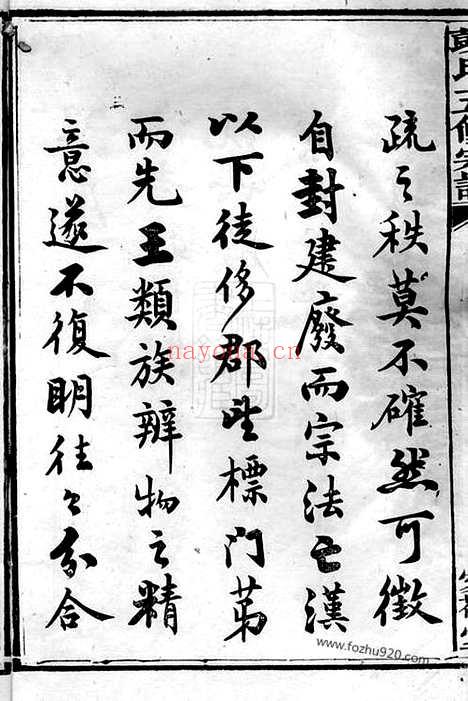 疏之秩莫不確然可徵
自封建廢而宗法亡漢
以下徒侈郡望標門第
而先王類族辨物之精
意遂不復明往々分合
氏三修宗譜
nayona.cn
www.fozhu920.com